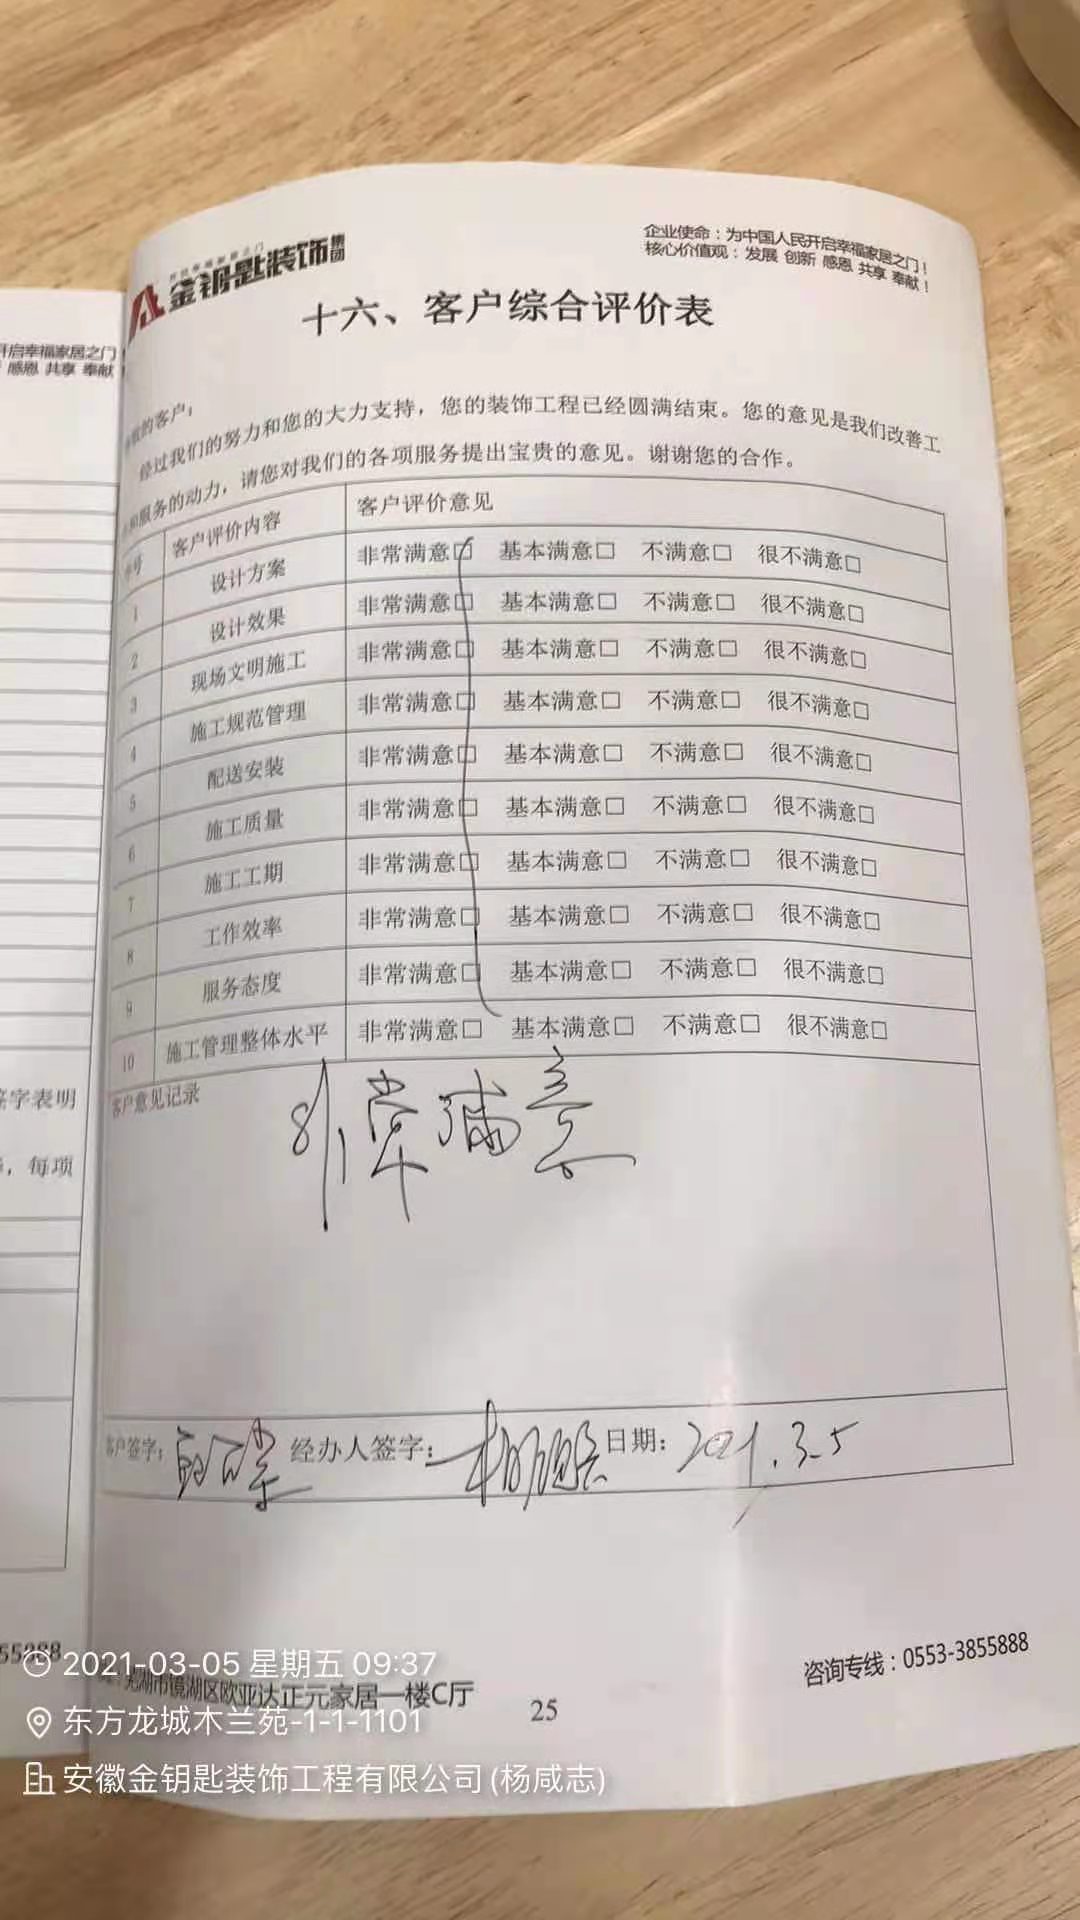 金钥匙装饰集团
企业使命：为中国人民开启幸福家居之门！
核心价值观：发展 创新 感恩 共享 奉献！
十六、客户综合评价表
开启幸福家居之门
感恩 共享 奉献
的客户：
经过我们的努力和您的大力支持，您的装饰工程已经圆满结束。您的意见是我们改善工
和服务的动力，请您对我们的各项服务提出宝贵的意见。谢谢您的合作。
号 客户评价内容 客户评价意见
1 设计方案 非常满意□ 基本满意□ 不满意□ 很不满意□
2 设计效果 非常满意□ 基本满意□ 不满意□ 很不满意□
3 现场文明施工 非常满意□ 基本满意□ 不满意□ 很不满意□
4 施工规范管理 非常满意□ 基本满意□ 不满意□ 很不满意□
5 配送安装 非常满意□ 基本满意□ 不满意□ 很不满意□
6 施工质量 非常满意□ 基本满意□ 不满意□ 很不满意□
7 施工工期 非常满意□ 基本满意□ 不满意□ 很不满意□
8 工作效率 非常满意□ 基本满意□ 不满意□ 很不满意□
9 服务态度 非常满意□ 基本满意□ 不满意□ 很不满意□
10 施工管理整体水平 非常满意□ 基本满意□ 不满意□ 很不满意□
客户意见记录
非常满意
签字表明
，每项
客户签字： 经办人签字： 日期：2021.3.5
55888
咨询专线：0553-3855888
芜湖市镜湖区欧亚达正元家居一楼C厅
25
2021-03-05 星期五 09:37
东方龙城木兰苑-1-1-1101
安徽金钥匙装饰工程有限公司(杨咸志)